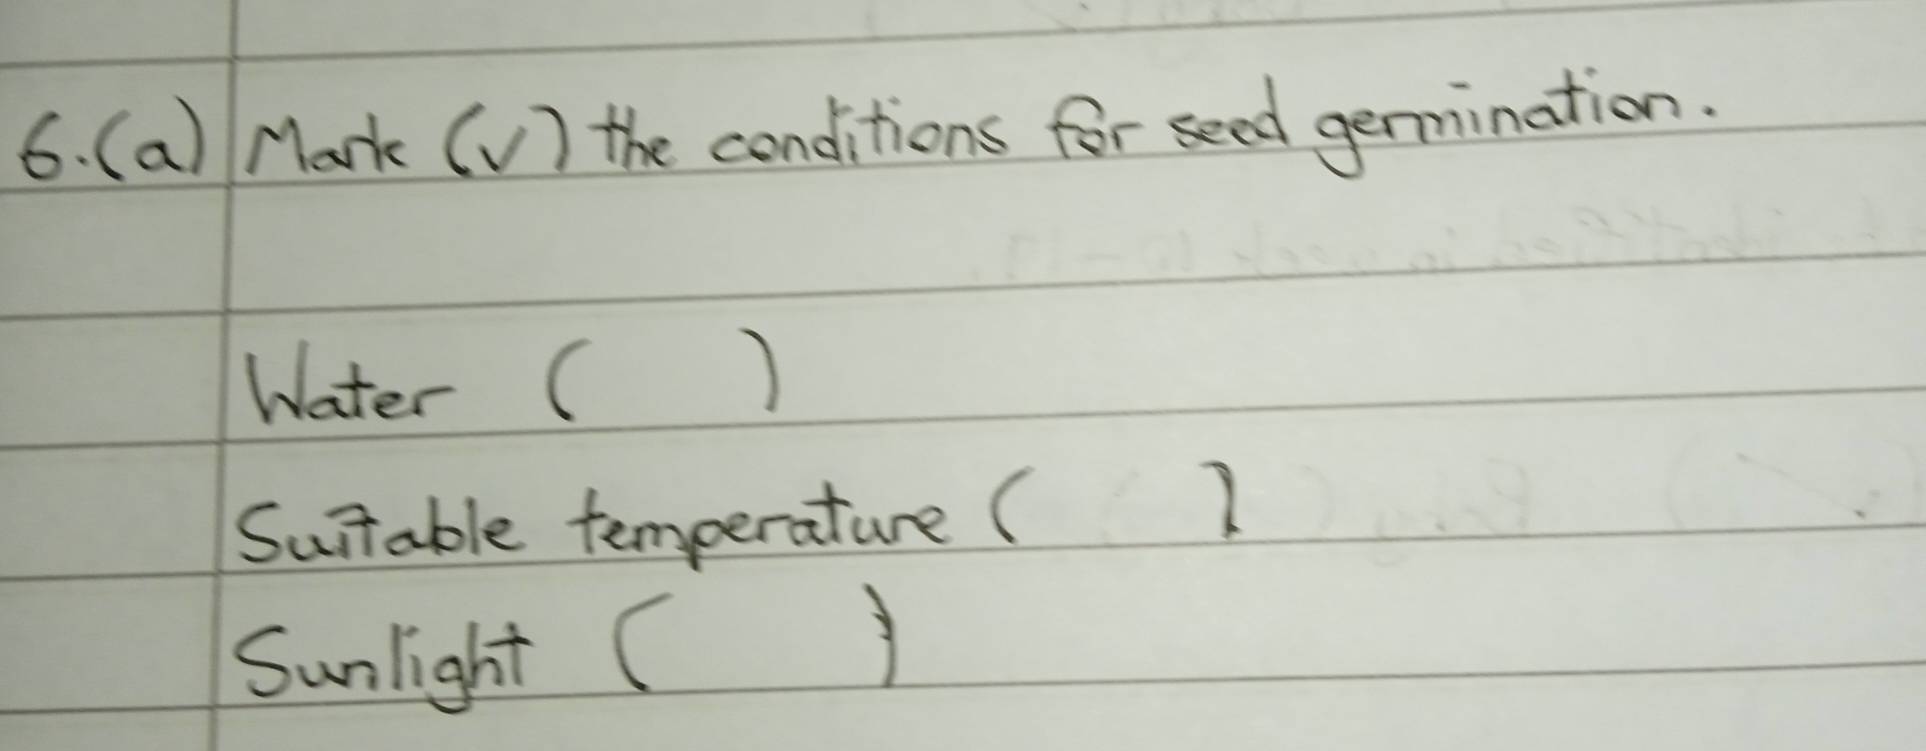 6.(a) Mark (√) the conditions for seed germination.
Water (   )
Suitable temperature (   )
Sunlight (   )